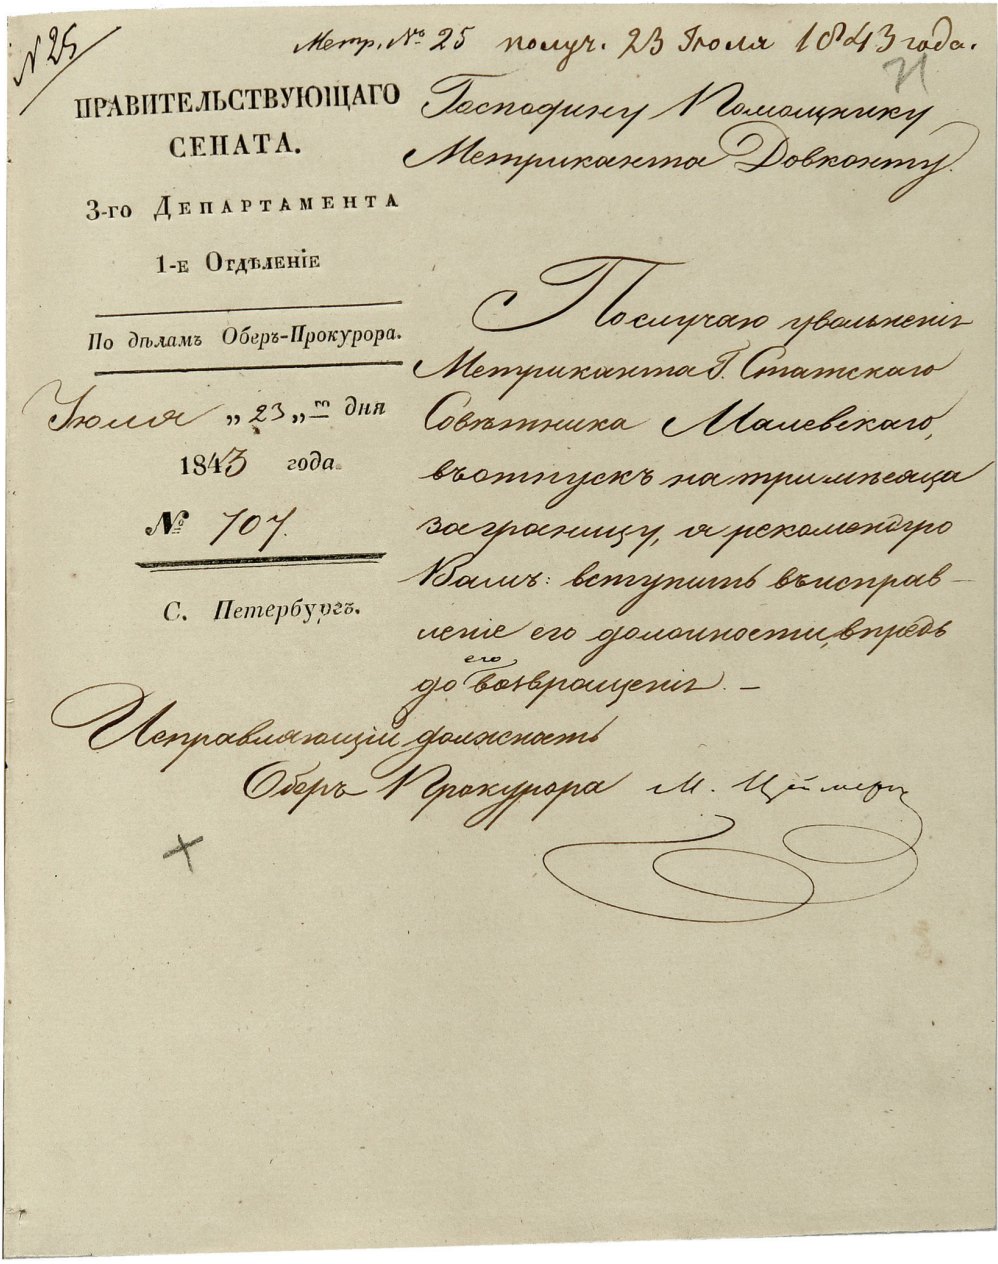 N 25
Метр. № 25 получ. 23 Іюля 1843 года.
ПРАВИТЕЛЬСТВУЮЩАГО
СЕНАТА.
3-го ДЕПАРТАМЕНТА
1-е ОТДѢЛЕНІЕ
По дѣламъ Оберъ-Прокурора.
Іюля „23„ го дня
1843 года.
№ 707.
С. Петербургъ.
Господину Помощнику
Метриканта Довконту.
По случаю увольненія
Метриканта Г. Статскаго
Совѣтника Малевскаго,
въ отпускъ на три мѣсяца
за границу, я рекомендую
Вамъ: вступить въ исправ-
леніе его должности, впредь
до его возвращенія. —
Исправляющій должность
Оберъ Прокурора М. Цеймернъ